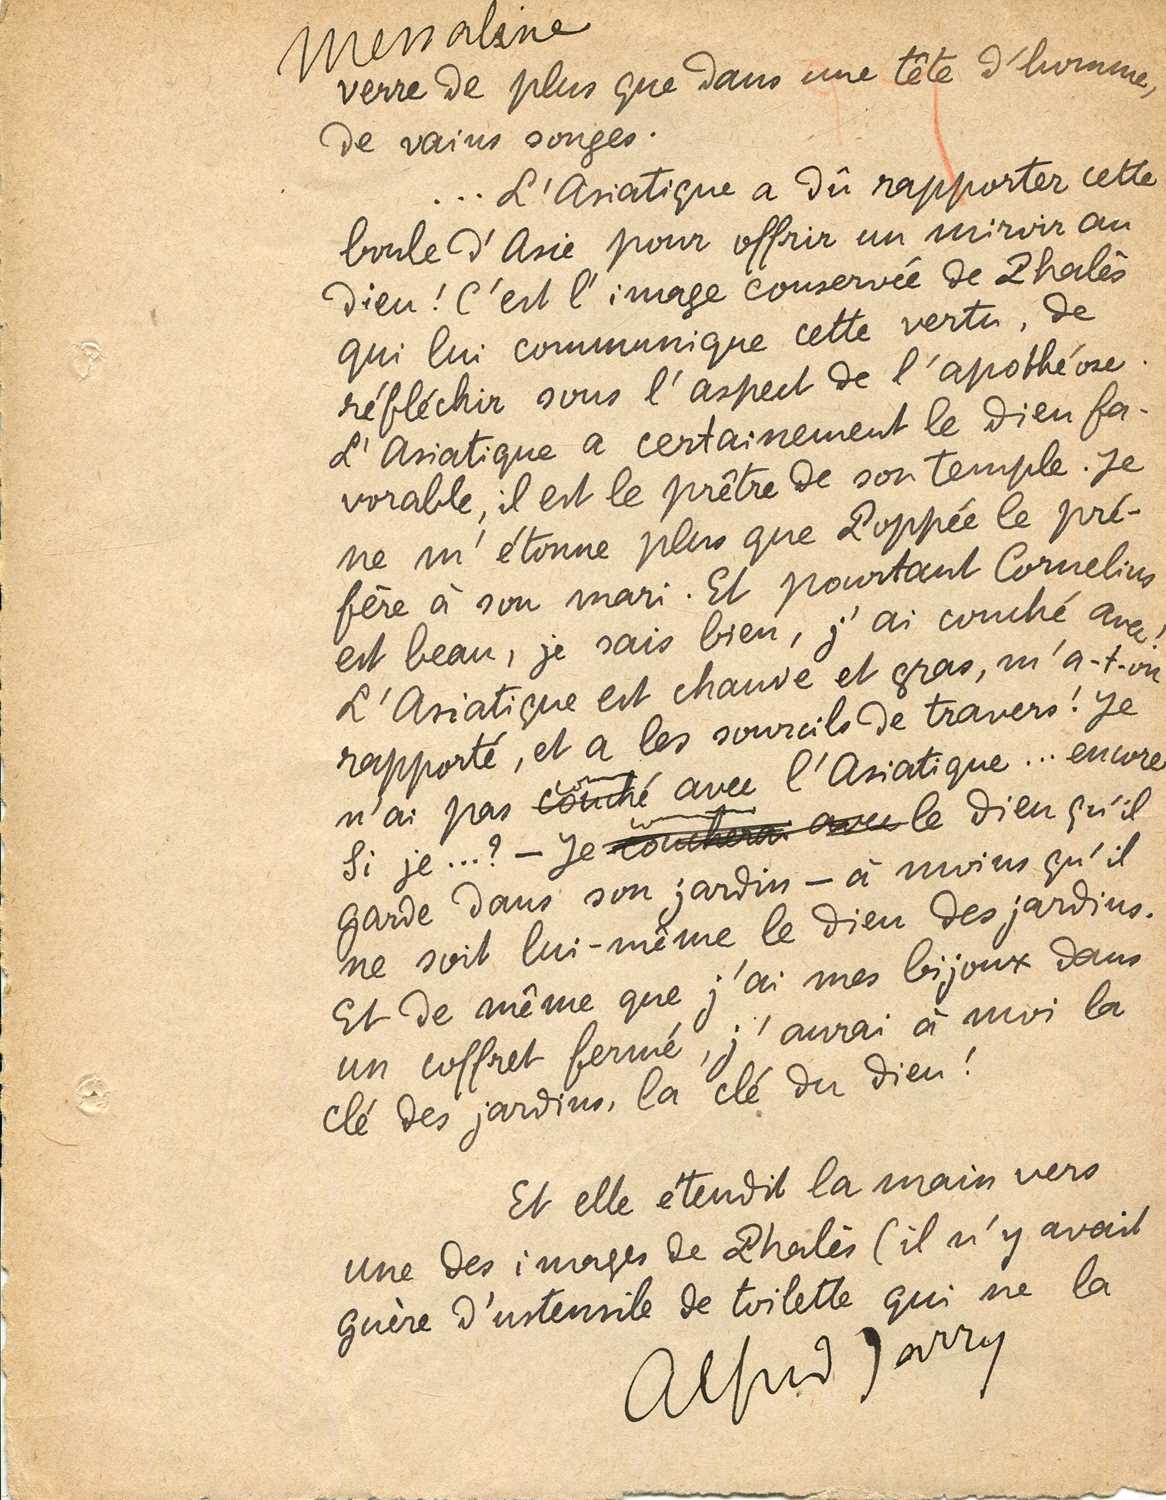 Messaline
verre de plus que dans une tête d'homme,
de vains songes.
... L'Asiatique a dû rapporter cette
boule d'Asie pour offrir un miroir au
dieu ! C'est l'image conservée de Phalès
qui lui communique cette vertu, de
réfléchir sous l'aspect de l'apothéose.
L'Asiatique a certainement le dieu fa-
vorable, il est le prêtre de son temple. Je
ne m'étonne plus que Poppée le pré-
fère à son mari. Et pourtant Cornelius
est beau, je sais bien, j'ai couché avec !
L'Asiatique est chauve et gras, m'a-t-on
rapporté, et a les sourcils de travers ! Je
n'ai pas couché avec l'Asiatique ... encore
Si je ... ? — Je coucherai avec le dieu qu'il
garde dans son jardin — à moins qu'il
ne soit lui-même le dieu des jardins.
Et de même que j'ai mes bijoux dans
un coffret fermé, j'aurai à moi la
clé des jardins, la clé du dieu !
Et elle étendit la main vers
une des images de Phalès (il n'y avait
guère d'ustensile de toilette qui ne la
Alfred Jarry